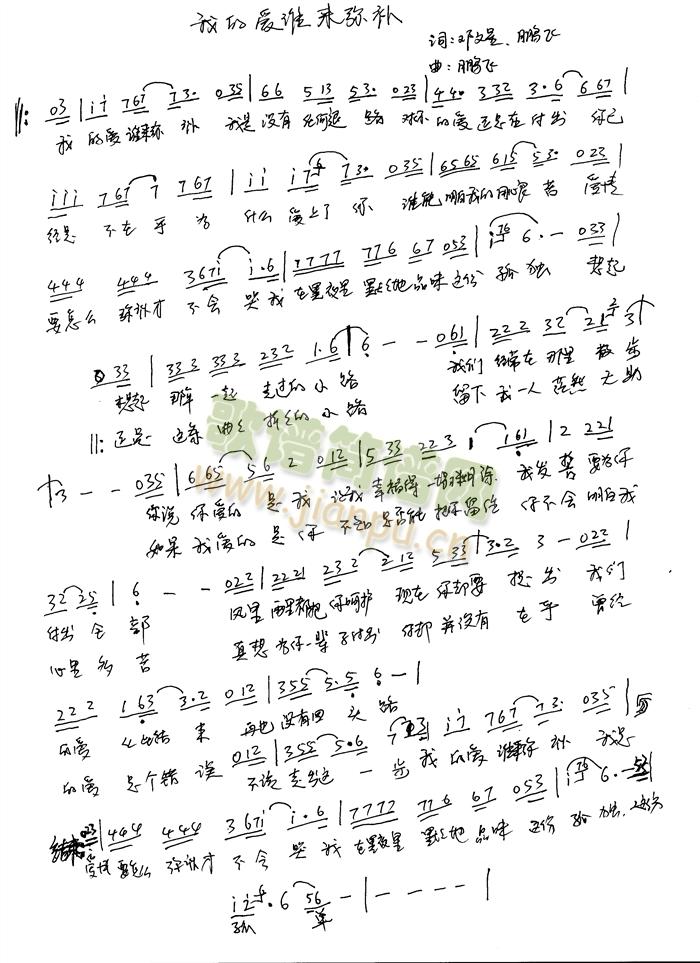 我的爱谁来弥补
词:邓文星、鹏飞
曲:鹏飞
03 | i i 767 73· 035 | 66 513 53· 023 | 44· 332 3·6 667 |
我 的爱谁来弥 补 我是 没有 任何退 路 对你 的爱 还是在 付出 你已
iii 767 7 767 | ii i7 73· 035 | 6565 615 53· 023 |
经是 不在 乎 为 什么 爱上了 你 谁能 明白我的 用心良 苦 爱情
444 444 367i i·6 | 7777 776 67 053 | i 6· — 033 |
要怎么 弥补才 不会 哭 我 在黑夜里 默默地 品味 这份 孤独 想起
033 | 333 333 232 1·6 | 6 — — 061 | 222 32 21 3 |
想起 那年 一起 走过的 小路 我们 经常在 那里 散步
‖: 还是 这条 曲曲 折折的 小路 留下 我一人 茫然 无助
3 — — 035 | 665 56 2 012 | 533 223 1 161 | 2 221
你说 你爱的 是 我 说我 幸福得 一塌糊涂 我发 誓 要为你
如果 我爱的 是 你 不知 是否能 把你留住 你不会 明白我
32 35 | 6 — — 022 | 2221 232 212 533 | 3·2 3 — 022 |
付出 全 部 风里 雨里都把 你呵护 现在 你却要 想出 我们
心里 多 苦 真想 为你一辈 子付出 你却 并没有 在乎 曾经
222 163 3·2 012 | 355 5·5 6 — |
的爱 从此结 束 再也 没有回 头路
的爱 是个错 误 012 | 355 5·6 7 03 | i i 767 73· 035 |
不该 走出这 一步 我 的爱 谁来弥 补 我是
结束: 023 | 444 444 367i i·6 | 7777 776 67 053 | i 6·
爱情 要怎么 弥补才 不会 哭 我 在黑夜里 默默地 品味 这份 孤独 这份
i i· 6 56 — | — — — — |
孤 单
歌谱简谱网
www.jianpu.cn